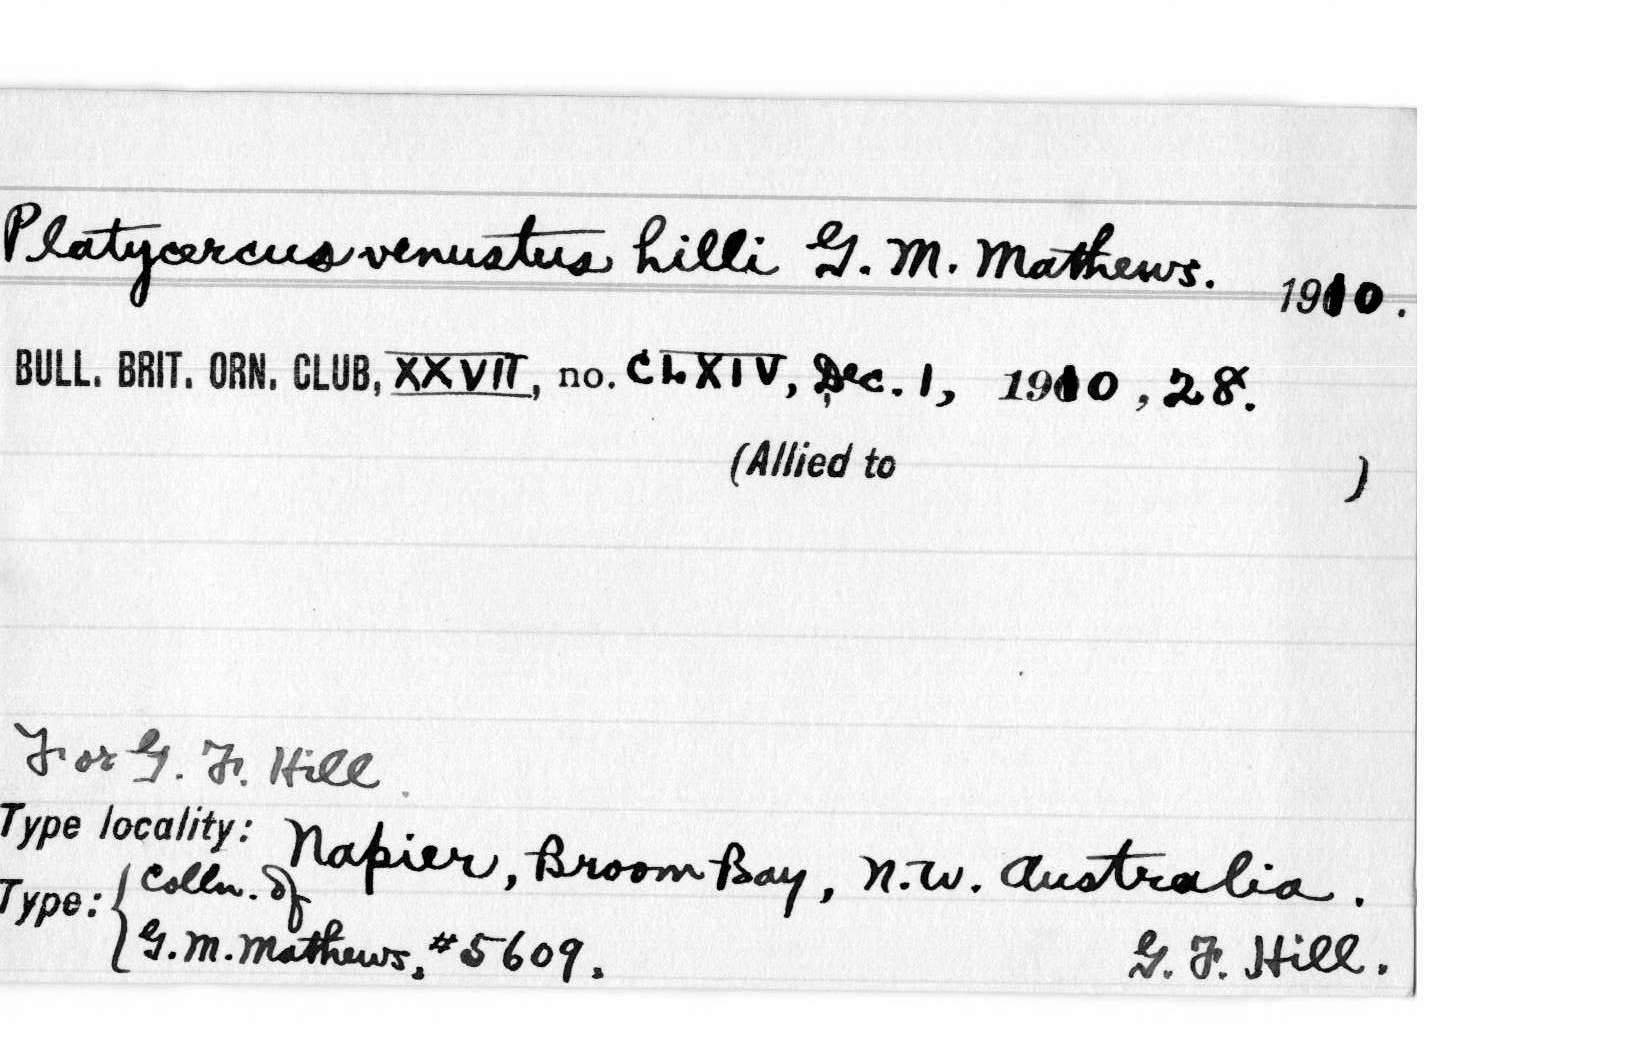 Platycercus venustus hilli G. M. Mathews. 1910.
BULL. BRIT. ORN. CLUB, XXVII, no. CLXIV, Dec. 1, 1910, 28.
(Allied to )
For G. F. Hill.
Type locality: Napier, Broom Bay, N.W. Australia.
Type: { Colln. of
G. M. Mathews, #5609. G. F. Hill.